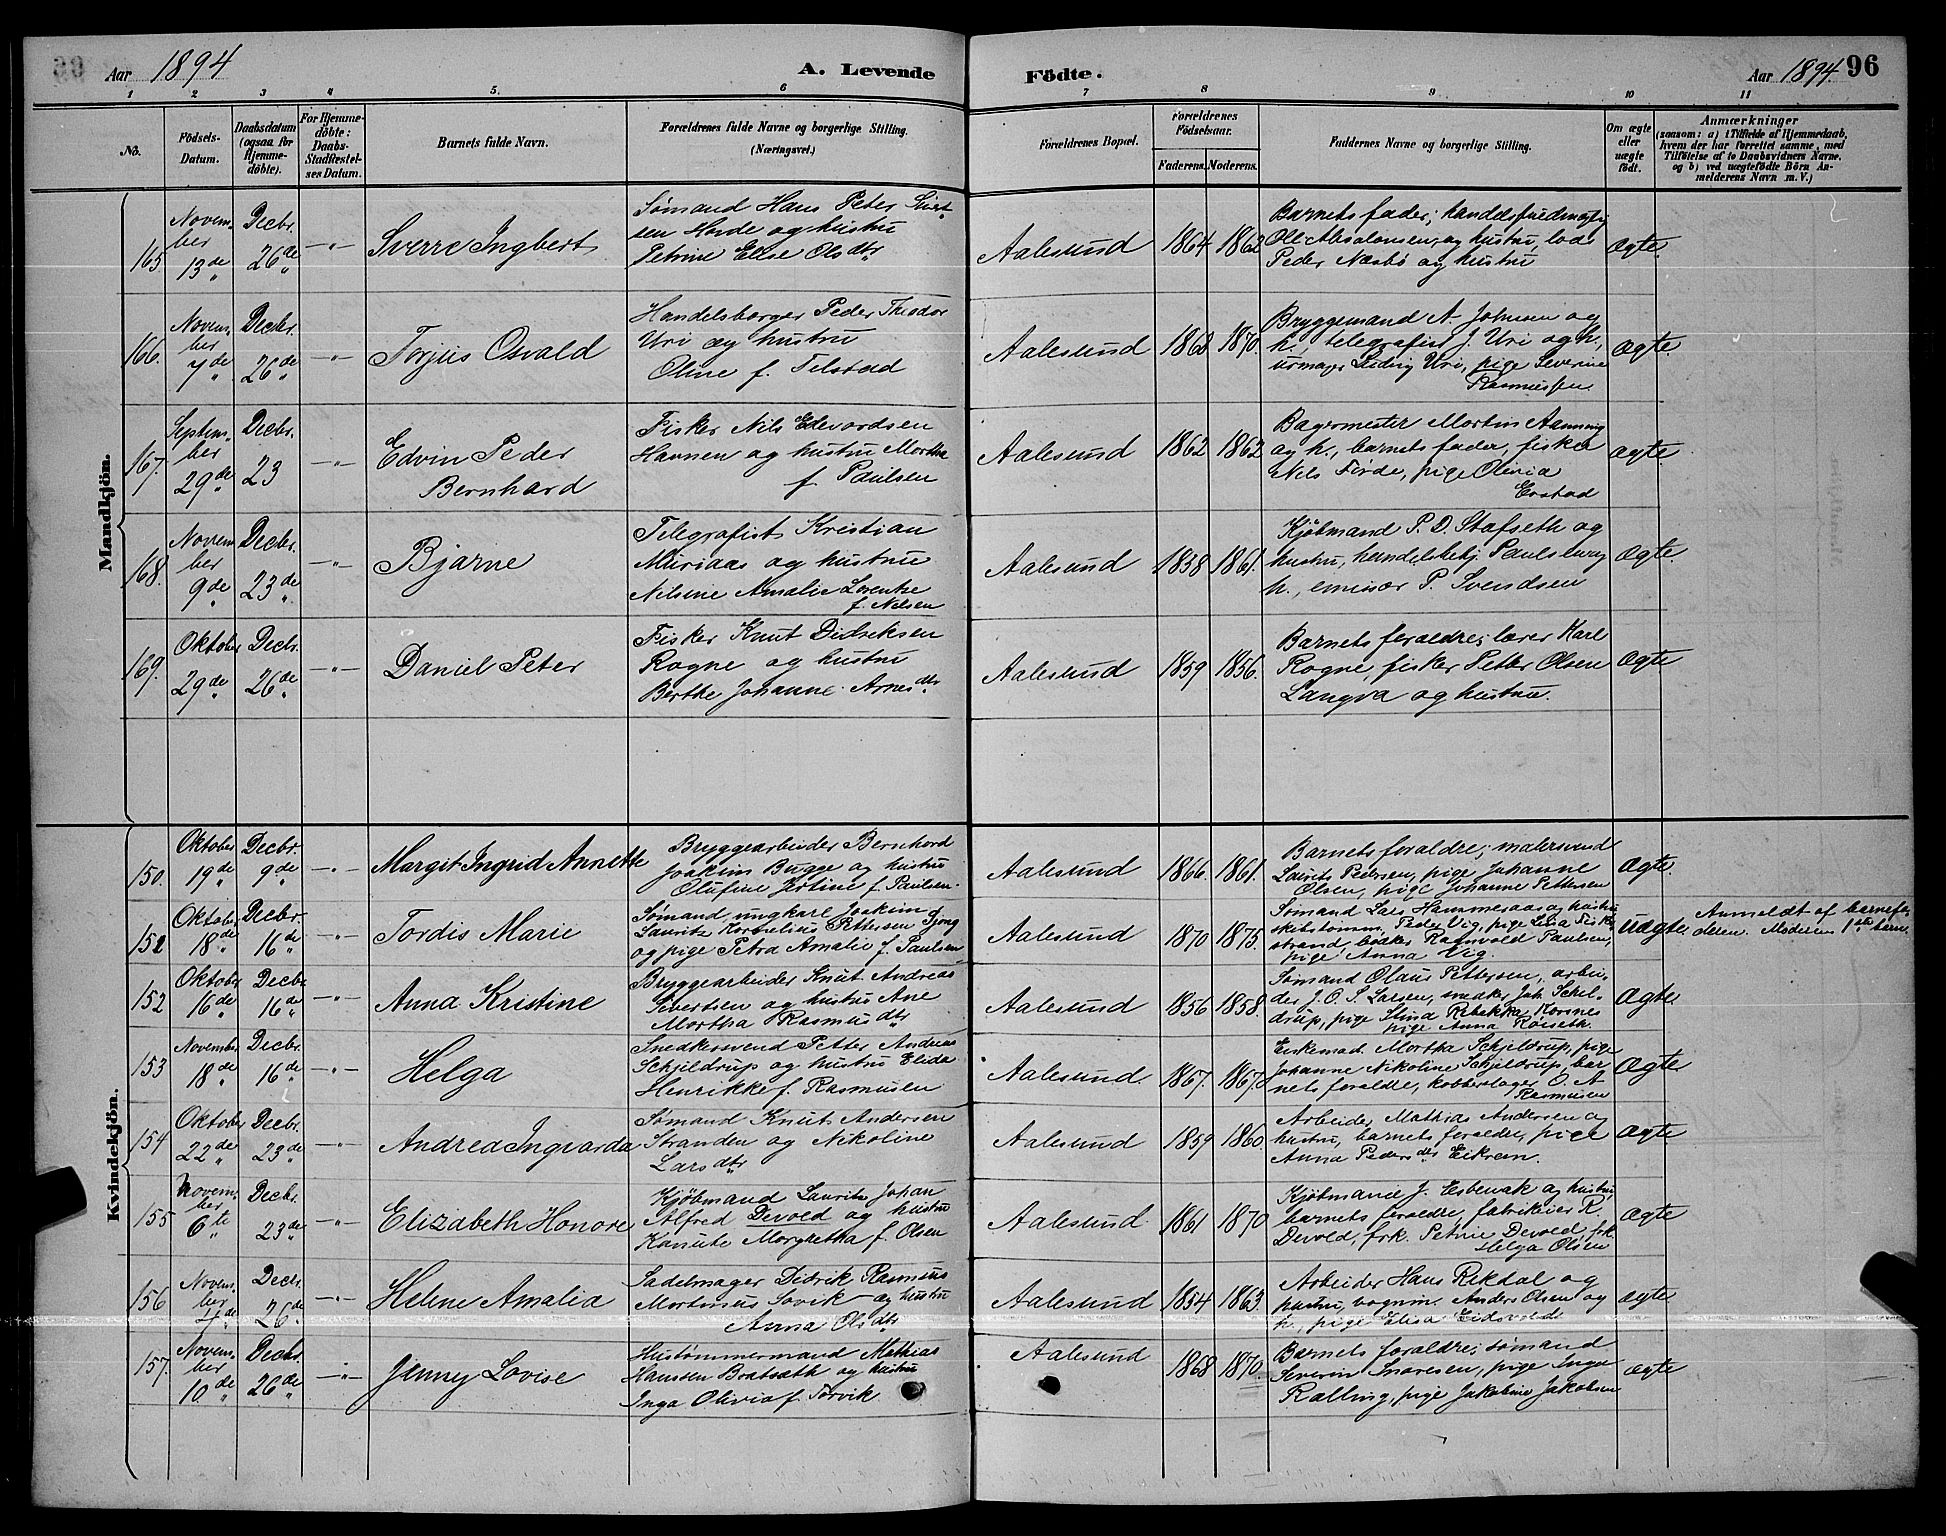 Aar 1894
A. Levende
Födte.
Aar 1894.
96
1
2
3
4
5.
6
7
8
9
10
11
No.
Födsels-
Datum.
Daabsdatum
(ogsaa for
Hjemme-
döbte).
For Hjemme-
döbte:
Daabs-
Stadfæstel-
ses Datum.
Barnets fulde Navn.
Forældrenes fulde Navne og borgerlige Stilling.
(Næringsvei.)
Forældrenes Bopæl.
Forældrenes
Födselsaar.
Faderens.
Moderens.
Faddernes Navne og borgerlige Stilling.
Om ægte
eller
uægte
født.
Anmærkninger
(saasom: a) i Tilfælde af Hjemmedaab,
hvem der har forrettet samme, med
Tilföielse af to Daabsvidners Navne,
og b) ved uægtefödte Börn An-
melderens Navn m. V.)
Mandkjön.
165
Novem-
ber
13de
Decbr.
26de
Sverre Ingbert
Sømand Hans Peter Sivert
sen Horde og hustru
Petrine Elise Olsdtr
Aalesund
1864
1862
Barnets fader; handelsfuldmægtig
Ole Absalonsen og hustru, lods
Peder Næsbø og hustru
Ægte.
166.
Novem-
ber
7de
Decbr.
26de
Torjus Osvald
Handelsborger Peder Theodor
Uri og hustru
Oline f. Tilstad
Aalesund
1863
1870.
Bryggemand A. Johnsen og
h., telegrafist J. Uri og h.,
urmager Ludvig Uri, pige Severine
Rasmussen
Ægte.
167.
Septem-
ber
29de
Decbr.
23
Edvin Peder
Bernhard
Fisker Nils Edevardsen
Havnen og hustru Martha
f Paulsen
Aalesund
1862
1862
Bagermester Martin Aanning
og h., barnets fader, fisker
Nils Førde, pige Olivia
Erstad
Ægte.
168.
Novem
ber
9de
Decbr.
23de
Bjarne
Telegrafist Kristian
Muriaas og hustru
Nilsine Amalie Lorentze
f. Nilsen
Aalesund
1838
1861.
Kjøbmand P. D. Stafseth og
hustru, handelsbetj. Paulsberg
h., emisær P. Svendsen
Ægte.
169.
Oktober
29de
Decbr.
26de
Daniel Peter
Fisker Knut Didriksen
Rogne og hustru
Berthe Johanne Arnesdtr.
Aalesund
1859
1856.
Barnets forældre; lærer Karl
Rogne, fisker Petter Olsen
Langva og hustru.
Ægte
Kvindekjön.
150.
Oktober
19de
Decbr.
9de
Margit Ingrid Annette
Bryggearbeider Bernhard
Joakim Bugge og hustru
Olufine Jertine f. Paulsen.
Aalesund
1866.
1861.
Barnets forældre; malersvend
Laurits Pedersen, pige Johanne
Olsen, pige Johanne Pettersen
Ægte.
151
Oktober
18de
Decbr.
16de
Tordis Marie
Sømand, ungkarl Joakim
Lauritz Kornelius Pettersen
og pige Petra Amalie f. Paulsen
Aalesund
1870
1875.
Sømand Lars Hammeraas og hustru
skibstømm. Peder Vig, pige Lina Fisker-
strand, bødker Ragnvald Paulsen,
pige Anna Vig.
Uægte.
Anmeldt af barnefa
deren. Moderens 1ste barn.
152
Oktober
16de
Decbr
16de
Anna Kristine
Bryggearbeider Knut Andreas
Sivertsen og hustru Ane
Martha Rasmusdtr
Aalesund
1856
1858.
Sømand Olaus Pettersen, arbei-
der J. O. S. Larsen, snedker Joh. Schil-
drup, pige Stina Rebekka Korsnes
pige Anna Røiseth.
Ægte
153
November
18de
Decbr.
16de
Helga
Snedkersvend Petter Andreas
Schjeldrup og hustru Elida
Henrikke f. Rasmusen
Aalesund.
1867.
1867.
Enkemad. Martha Schjeldrup, pige
Johanne Nikoline Schjeldrup, bar
nets forældre, kobberslager O. A
Rasmusen
Ægte
154
Oktober
22de
Decbr.
23de
Andrea Ingvarda
Sømand Knut Andersen
Stranden og Nikoline
Larsdtr
Aalesund
1859
1860.
Arbeider Mathias Andersen og
hustru, barnets forældre, pige
Anna Pedersdtr Eikrem.
Ægte
155
Novem-
ber
6te
Decbr.
23de
Elizabeth Honore
Kjøbmand Lauritz Johan
Alfred Devold og hustru
Kanute Margretha f. Olsen
Aalesund
1861
1870
Kjøbmand J. Esbensak og hustru
barnets forældre, fabrikeier R.
Devold, frk. Petrine Devold, frk.
Helga Olsen
Ægte
156
Novem-
ber
4de
Decbr.
26de
Helene Amalia
Sadelmager Didrik Rasmus
Martinus Søvik og hustru
Anna Olsdtr
Aalesund
1854
1863.
Arbeider Hans Rekdal og
hustru, vognm. Anders Olsen og
h., pige Elisa Eidsvold
Ægte
157.
Novem-
ber
10de
Decbr.
26de
Jenny Lovise
Hustømmermand Mathias
Hanssen Bratsæth og hustru
Inga Olivia f. Torvik
Aalesund
1868
1870.
Barnets forældre; sømand
Severin Snoresen, pige Inga
Rølling, pige Jakobine Jakobsen
Ægte